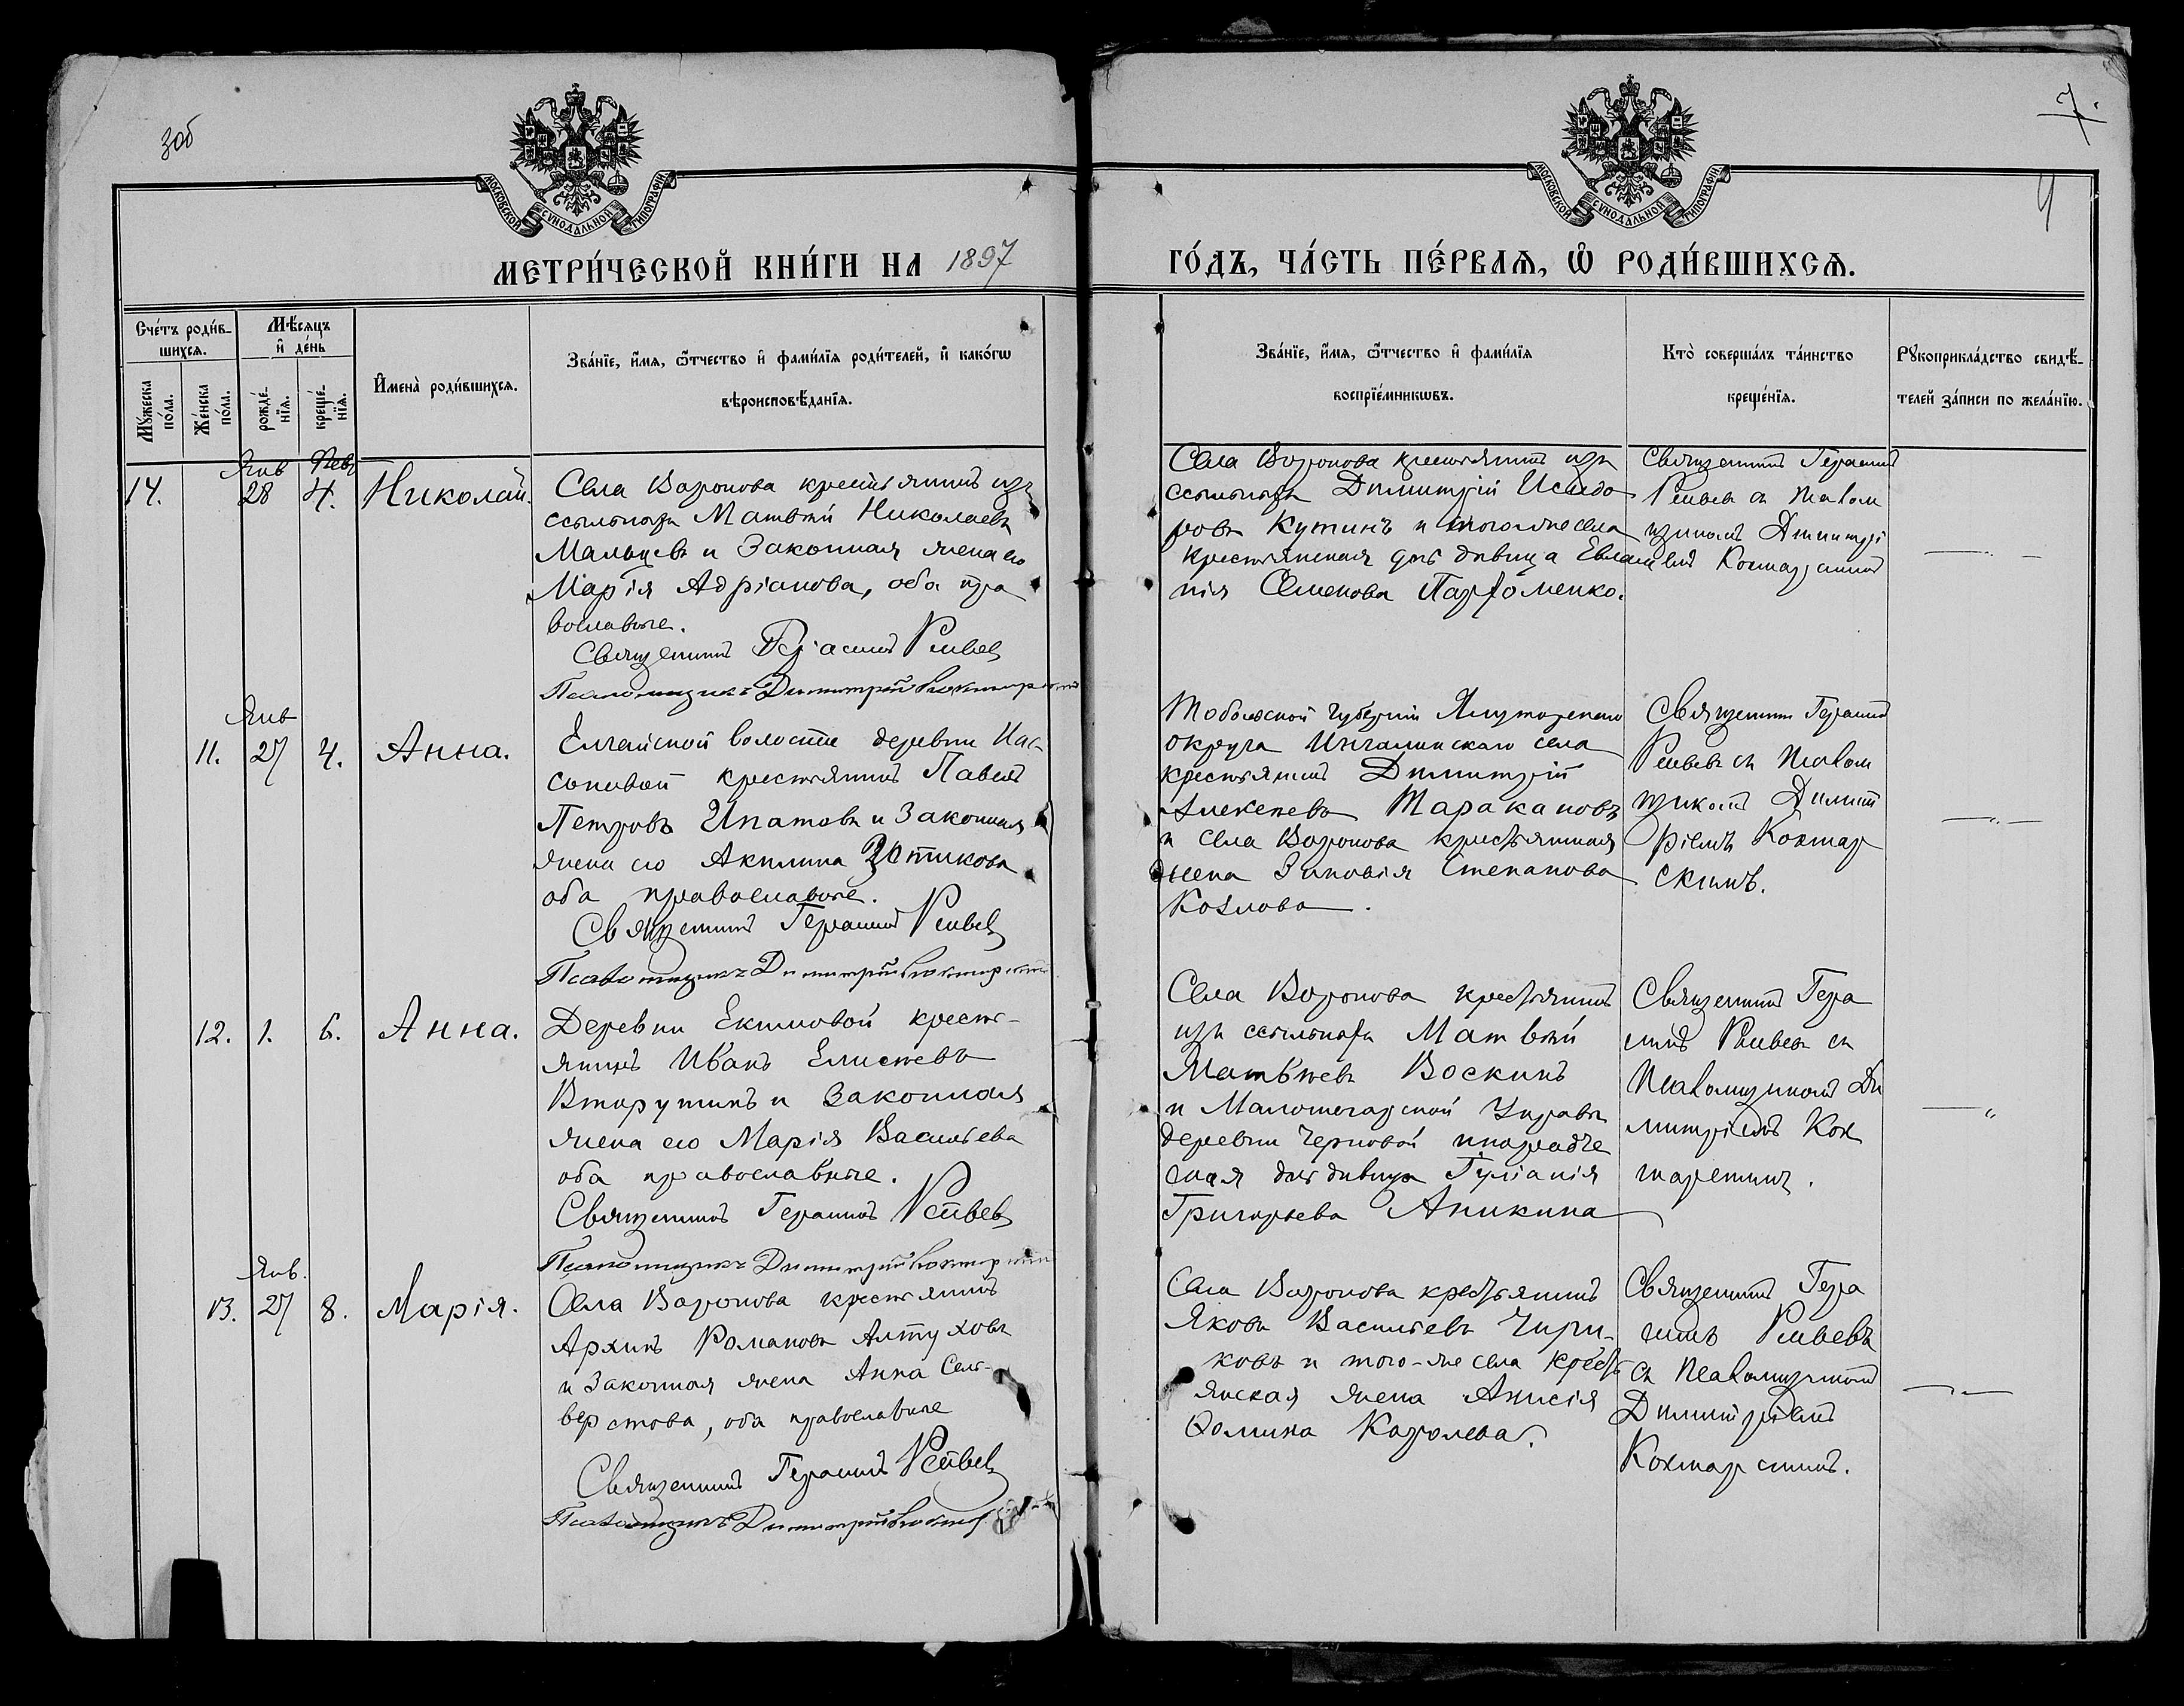 3об
7.
4
МОСКОВСКОЙ СУНОДАЛЬНОЙ ТИПОГРАФІИ
МОСКОВСКОЙ СУНОДАЛЬНОЙ ТИПОГРАФІИ
МЕТРИ́ЧЕСКОЙ КНИ́ГИ НА 1897
ГО́ДЪ, ЧА́СТЬ ПЕ́РВАѦ, Ѡ҆ РОДИ́ВШИХСѦ.
Сче́тъ роди́в-
шихсѧ.
Мꙋ́жеска по́ла.
Же́нска по́ла.
Мѣ́сѧцъ и҆ де́нь
рожде́-нїѧ.
креще́-нїѧ.
И҆мена̀ роди́вшихсѧ.
Зва́нїе, и҆́мѧ, ѻ҆́тчество и҆ фами́лїѧ роди́телей, и҆ како́гѡ
вѣроисповѣ́данїѧ.
Зва́нїе, и҆́мѧ, ѻ҆́тчество и҆ фами́лїѧ
воспрїе́мникѡвъ.
Кто̀ соверша́лъ та́инство
креще́нїѧ.
Рꙋкоприкла́дство свидѣ́-
телей за́писи по жела́нїю.
14.
Янв Февр
28 4.
Николай.
Села Воронова крестьянинъ изъ
ссыльныхъ Матвѣй Николаевъ
Мальцевъ и законная жена его
Марія Адріанова, оба пра
вославные.
Священникъ
Псаломщикъ Димитрій
Села Воронова крестьянинъ изъ
ссыльныхъ Димитрій Исидо
ровъ Кутинъ и того же села
крестьянская дѣвица Евлам
пія Семенова Парфоменко.
Священникъ Герасимъ
съ псалом
щикомъ Димитрі
емъ
Янв
11. 27 4. Анна.
Елгайской волости деревни
крестьянинъ Павелъ
Петровъ Ипатовъ и законная
жена его Акилина
оба православные.
Священникъ Герасимъ
Псаломщикъ Димитрій
Тобольской губерніи Ялуторскаго
округа Ингалинскаго села
крестьянинъ Димитрій
Алексеевъ Таракановъ
и села Воронова крестьянская
жена Зиновія Степанова
Козлова.
Священникъ Герасимъ
съ псалом
щикомъ Димит
ріемъ Кохтар
скимъ.
12. 1. 6. Анна.
Деревни Екимовой кресть-
янинъ Иванъ Елисеевъ
Вторушинъ и законная
жена его Марія Васильева
оба православные.
Священникъ Герасимъ
Псаломщикъ Димитрій
Села Воронова крестьянинъ
изъ ссыльныхъ Матвѣй
Матвѣевъ Воскинъ
и Малошегарской Управы
деревни Черновой инородче
ская дѣвица Гуліанія
Григорьева Аникина
Священникъ Гера
симъ съ
псаломщикомъ Ди
митріемъ Кох
тарскимъ.
Янв.
13. 27 8. Марія.
Села Воронова крестьянинъ
Архипъ Романовъ Алтуховъ
и законная жена Анна Сель-
верстова, оба православные
Священникъ Герасимъ
Псаломщикъ Димитрій
Села Воронова крестьянинъ
Яковъ Васильевъ Чири-
ковъ и того-же села кресть
янская жена Анисія
Ѳомина Королева.
Священникъ Гера
симъ
съ псаломщикомъ
Димитріемъ
Кохтарскимъ.